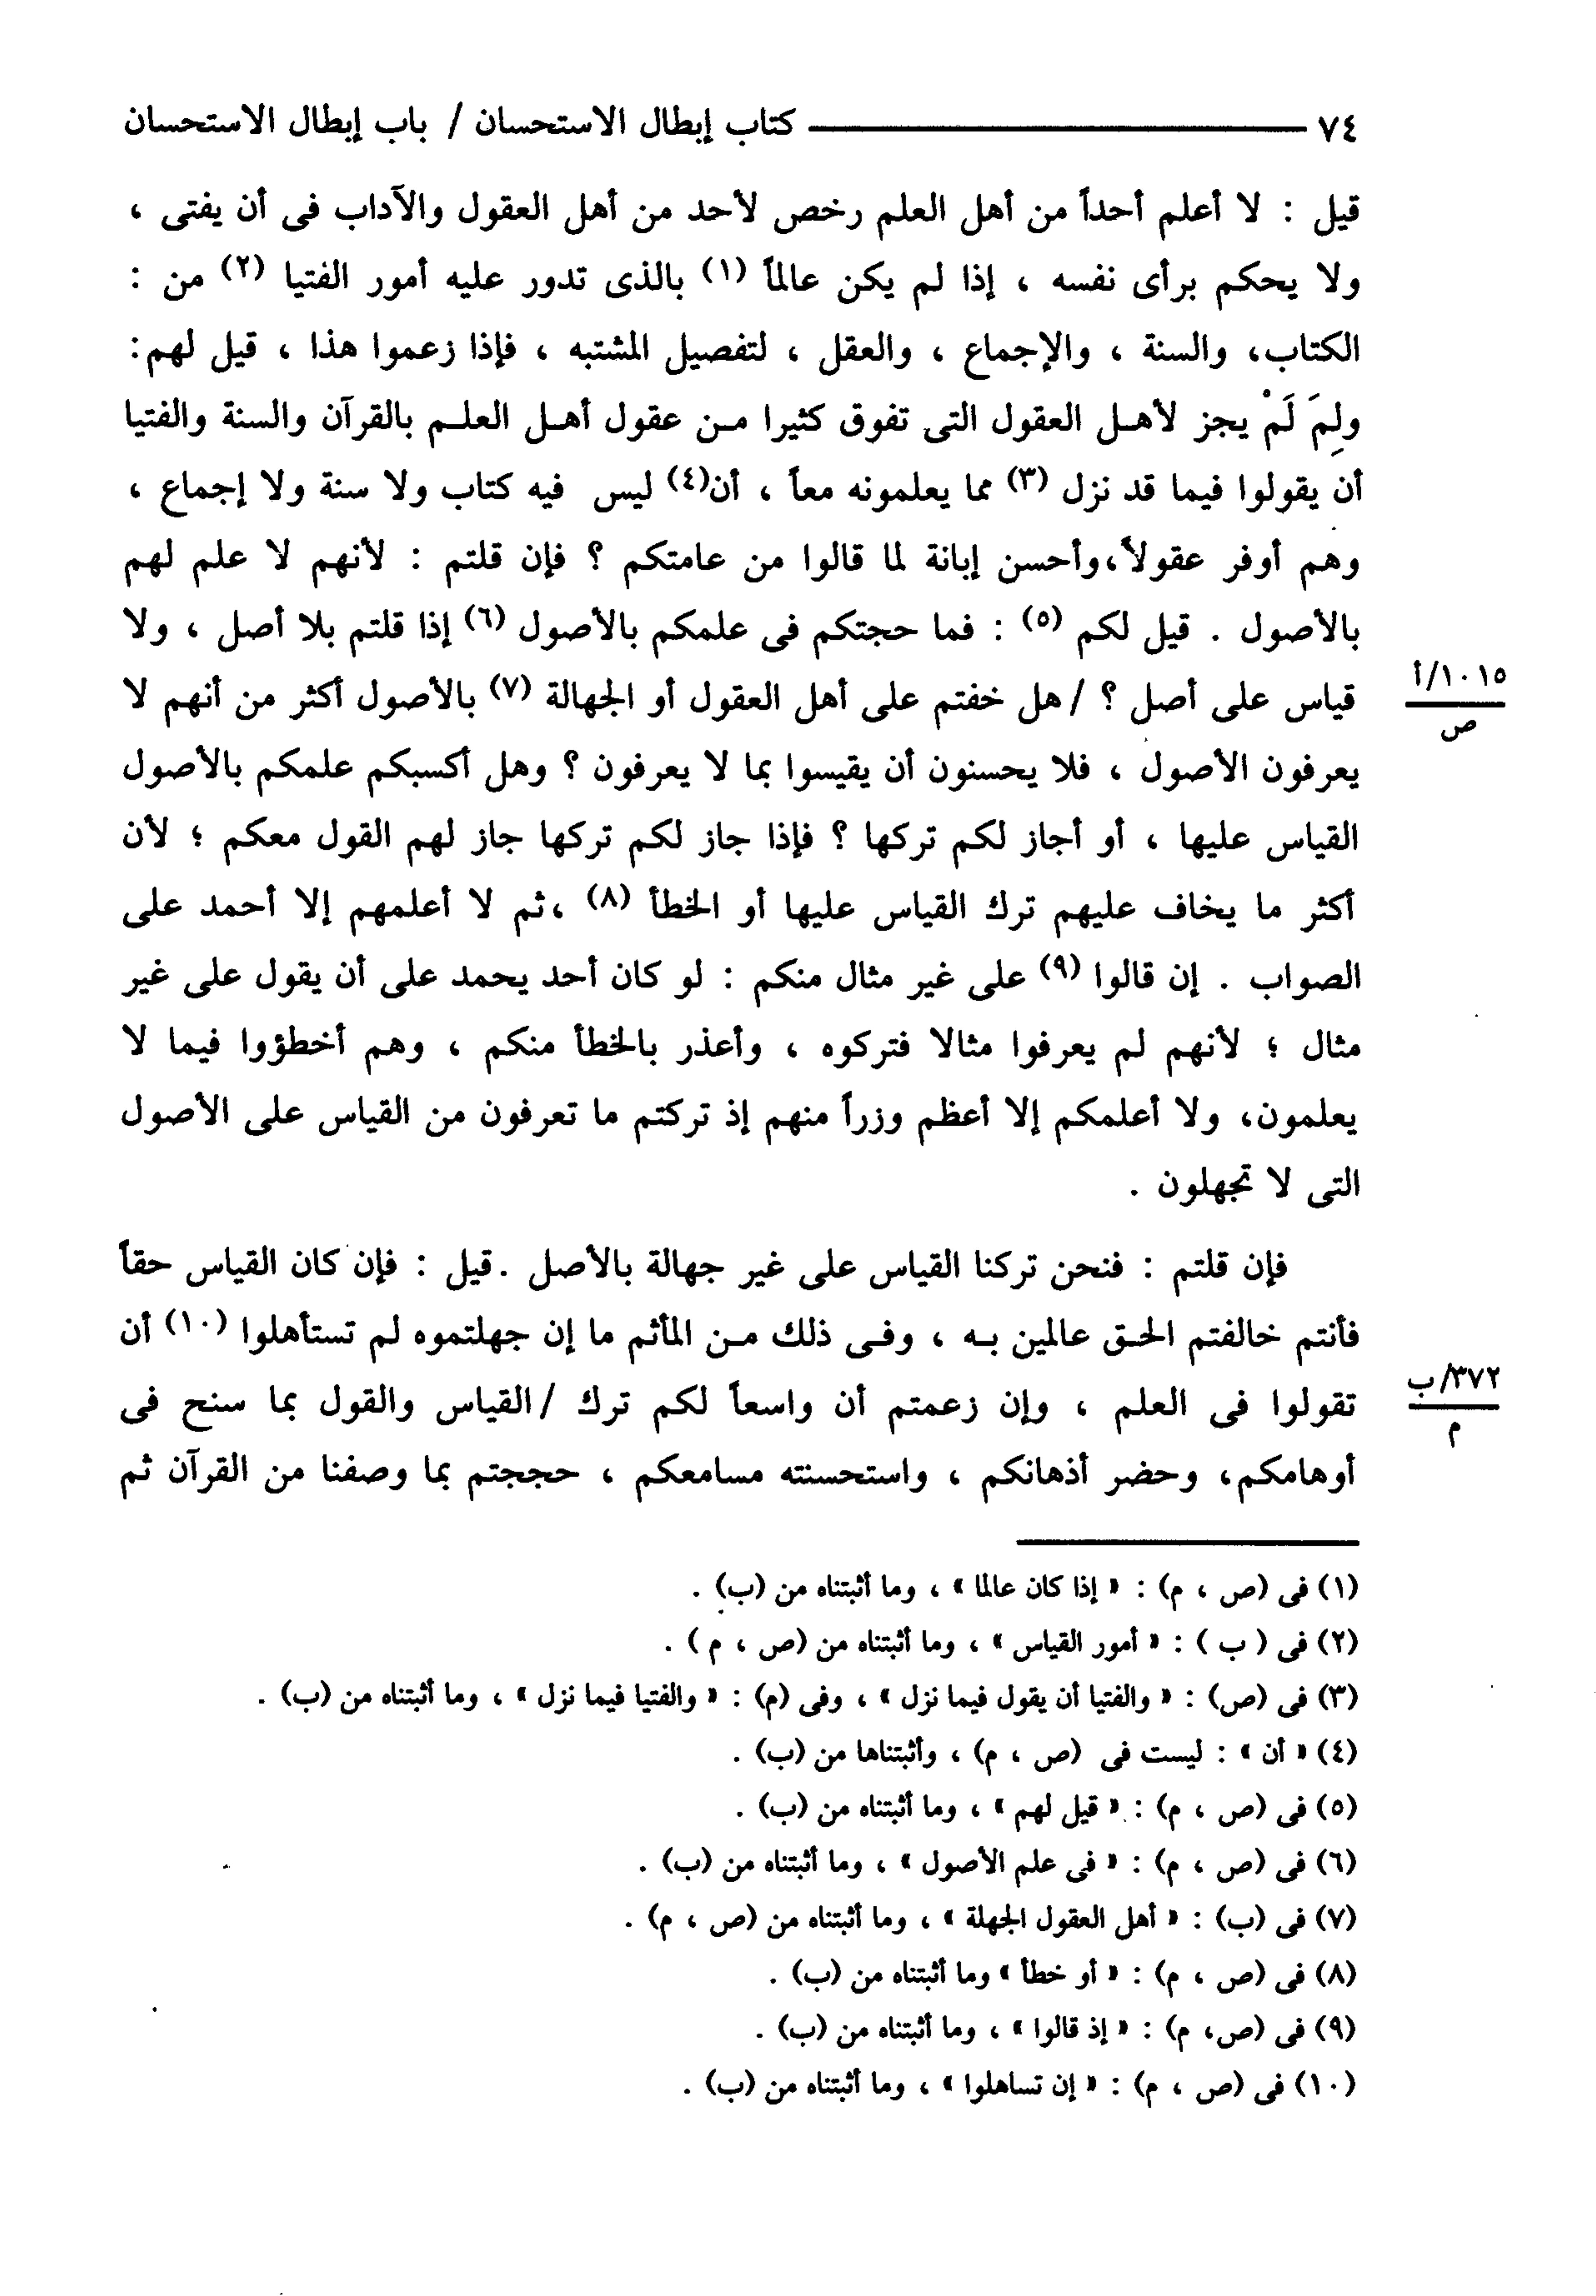 ٧٤ ــــــ كتاب إبطال الاستحسان / باب إبطال الاستحسان
قيل : لا أعلم أحداً من أهل العلم رخص لأحد من أهل العقول والآداب فى أن يفتى ،
ولا يحكم برأى نفسه ، إذا لم يكن عالماً (١) بالذى تدور عليه أمور الفتيا (٢) من :
الكتاب، والسنة ، والإجماع ، والعقل ، لتفصيل المشتبه ، فإذا زعموا هذا ، قيل لهم:
ولِمَ لَمْ يجز لأهـل العقول التى تفوق كثيرا مـن عقول أهـل العلـم بالقرآن والسنة والفتيا
أن يقولوا فيما قد نزل (٣) مما يعلمونه معاً ، أن(٤) ليس فيه كتاب ولا سنة ولا إجماع ،
وهم أوفر عقولاً،وأحسن إبانة لما قالوا من عامتكم ؟ فإن قلتم : لأنهم لا علم لهم
بالأصول . قيل لكم (٥) : فما حجتكم فى علمكم بالأصول (٦) إذا قلتم بلا أصل ، ولا
قياس على أصل ؟ /هل خفتم على أهل العقول أو الجهالة (٧) بالأصول أكثر من أنهم لا
١٠١٥/أ
ص
يعرفون الأصول ، فلا يحسنون أن يقيسوا بما لا يعرفون ؟ وهل أكسبكم علمكم بالأصول
القياس عليها ، أو أجاز لكم تركها ؟ فإذا جاز لكم تركها جاز لهم القول معكم ؛ لأن
أكثر ما يخاف عليهم ترك القياس عليها أو الخطأ (٨) ،ثم لا أعلمهم إلا أحمد على
الصواب . إن قالوا (٩) على غير مثال منكم : لو كان أحد يحمد على أن يقول على غير
مثال ؛ لأنهم لم يعرفوا مثالا فتركوه ، وأعذر بالخطأ منكم ، وهم أخطؤوا فيما لا
يعلمون، ولا أعلمكم إلا أعظم وزراً منهم إذ تركتم ما تعرفون من القياس على الأصول
التى لا تجهلون .
فإن قلتم : فنحن تركنا القياس على غير جهالة بالأصل .قيل : فإن كان القياس حقاً
فأنتم خالفتم الحـق عالمين بـه ، وفـى ذلك مـن المأثم ما إن جهلتموه لم تستأهلوا (١٠) أن
تقولوا فى العلم ، وإن زعمتم أن واسعاً لكم ترك /القياس والقول بما سنح فى
٣٧٢/ب
م
أوهامكم، وحضر أذهانكم ، واستحسنته مسامعكم ، حججتم بما وصفنا من القرآن ثم
(١) فى (ص ، م) : « إذا كان عالما » ، وما أثبتناه من (ب) .
(٢) فى ( ب ) : « أمور القياس » ، وما أثبتناه من (ص ، م ) .
(٣) فى (ص) : « والفتيا أن يقول فيما نزل » ، وفى (م) : « والفتيا فيما نزل » ، وما أثبتناه من (ب) .
(٤) « أن » : ليست فى (ص ، م) ، وأثبتناها من (ب) .
(٥) فى (ص ، م) : « قيل لهم » ، وما أثبتناه من (ب) .
(٦) فى (ص ، م) : « فى علم الأصول » ، وما أثبتناه من (ب) .
(٧) فى (ب) : « أهل العقول الجهلة » ، وما أثبتناه من (ص ، م) .
(٨) فى (ص ، م) : « أو خطأ » وما أثبتناه من (ب) .
(٩) فى (ص، م) : « إذ قالوا » ، وما أثبتناه من (ب) .
(١٠) فى (ص ، م) : « إن تساهلوا » ، وما أثبتناه من (ب) .